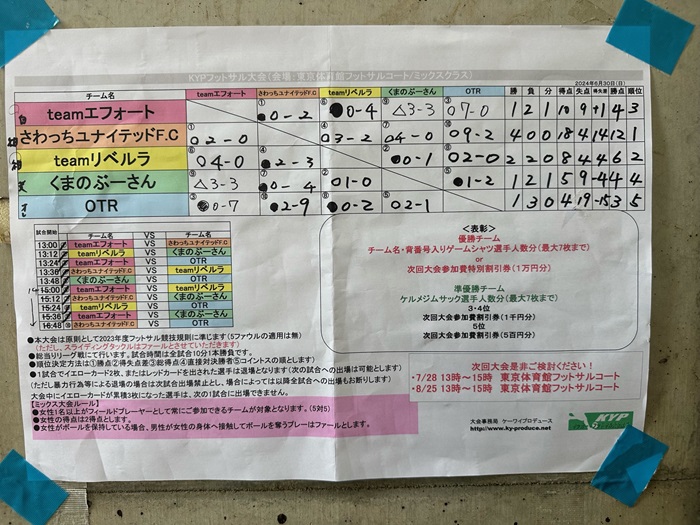 KYPフットサル大会(会場:東京体育館フットサルコート/ミックスクラス)
2024年6月30日(日)
チーム名 teamエフォート さわっちユナイテッドF.C teamリベルラ くまのぷーさん OTR 勝 負 分 得点 失点 得失差 勝点 順位
teamエフォート ① ●0-2 ⑥ ●0-4 ⑨ △3-3 ③ ○7-0 1 2 1 10 9 +1 4 3
さわっちユナイテッドF.C ① ○2-0 ④ ○3-2 ⑦ ○4-0 ⑩ ○9-2 4 0 0 18 4 14 12 1
teamリベルラ ⑥ ○4-0 ④ ●2-3 ② ●0-1 ⑧ ○2-0 2 2 0 8 4 4 6 2
くまのぷーさん ⑨ △3-3 ⑦ ●0-4 ② ○1-0 ⑤ ●1-2 1 2 1 5 9 -4 4 4
OTR ③ ●0-7 ⑩ ●2-9 ⑧ ●0-2 ⑤ ○2-1 1 3 0 4 19 -15 3 5
試合開始 チーム名 VS チーム名
13:00 teamエフォート VS さわっちユナイテッドF.C
13:12 teamリベルラ VS くまのぷーさん
13:24 teamエフォート VS OTR
13:36 さわっちユナイテッドF.C VS teamリベルラ
13:48 くまのぷーさん VS OTR
15:00 teamエフォート VS teamリベルラ
15:12 さわっちユナイテッドF.C VS くまのぷーさん
15:24 teamリベルラ VS OTR
15:36 teamエフォート VS くまのぷーさん
15:48 さわっちユナイテッドF.C VS OTR
<表彰>
優勝チーム
チーム名・背番号入りゲームシャツ選手人数分(最大7枚まで)
or
次回大会参加費特別割引券(1万円分)
準優勝チーム
ケルメジムサック選手人数分(最大7枚まで)
3・4位
次回大会参加費割引券(1千円分)
5位
次回大会参加費割引券(5百円分)
●本大会は原則として2023年度フットサル競技規則に準じます(5ファウルの適用は無し)
(ただし、スライディングタックルはファールとさせていただきます)
●総当りリーグ戦にて行います。試合時間は全試合10分1本勝負です。
●順位決定方法は①勝点②得失点差③総得点④直接対決勝者⑤コイントスの順とします)
●1試合でイエローカード2枚、またはレッドカードを出された選手は退場となります(次の試合への出場は可能とします)
(ただし暴力行為等による退場の場合は次試合出場禁止とし、場合によっては以降全試合への出場もお断りします)
大会中にイエローカードが累積3枚になった選手は、次の1試合に出場できません。
【ミックス大会ルール】
●女性1名以上がフィールドプレーヤーとして常にご参加できるチームが対象となります。(5対5)
●女性の得点は2得点とします。
●女性がボールを保持している場合、男性が女性の身体へ接触してボールを奪うプレーはファールとします。
次回大会是非ご検討ください!
・7/28 13時〜15時 東京体育館フットサルコート
・8/25 13時〜15時 東京体育館フットサルコート
大会事務局 ケーワイプロデュース
http://www.ky-produce.net
KYP